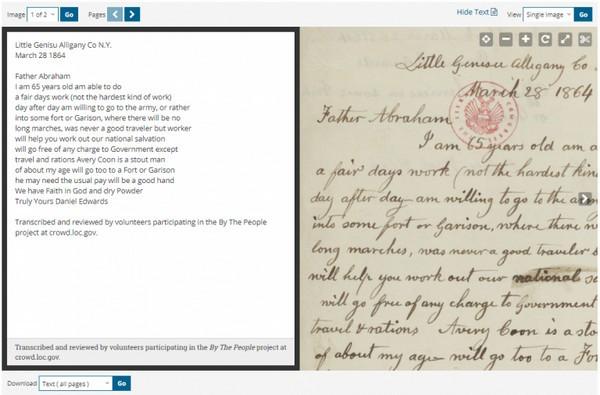 Image 1 of 2 Go Pages Hide Text View Single Image Go
Little Genisu Alligany Co N.Y.
March 28 1864
Father Abraham
I am 65 years old am able to do
a fair days work (not the hardest kind of work)
day after day am willing to go to the army, or rather
into some fort or Garison, where there will be no
long marches, was never a good traveler but worker
will help you work out our national salvation
will go free of any charge to Government except
travel and rations Avery Coon is a stout man
of about my age will go too to a Fort or Garison
he may need the usual pay will be a good hand
We have Faith in God and dry Powder
Truly Yours Daniel Edwards
Transcribed and reviewed by volunteers participating in the By The People
project at crowd.loc.gov.
Transcribed and reviewed by volunteers participating in the By The People project at
crowd.loc.gov.
Download Text ( all pages ) Go
Little Genisu Allegany Co.
March 28 1864
Father Abraham
I am 65 years old am a
a fair days work (not the hardest kin
day after day am willing to go to the arm
into some fort or Garison, where there w
long marches, was never a good traveler b
will help you work out our national sa
will go free of any charge to Government
travel & rations Avery Coon is a sto
of about my age will go too to a For